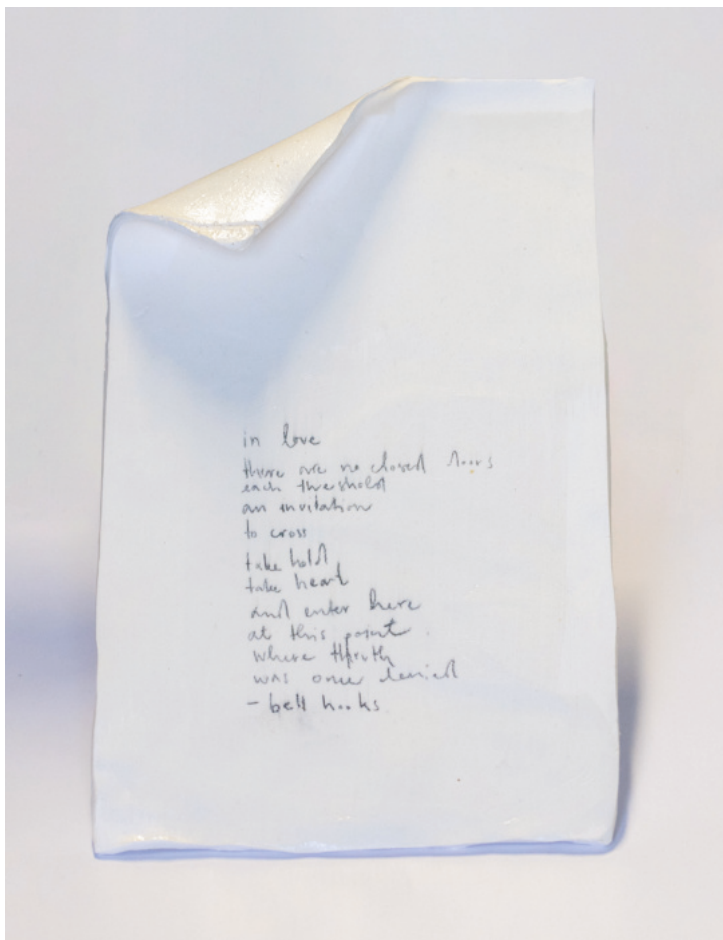 in love
there are no closed doors
each threshold
an invitation
to cross
take hold
take heart
and enter here
at this point
where thruth
was once denied
- bell hooks